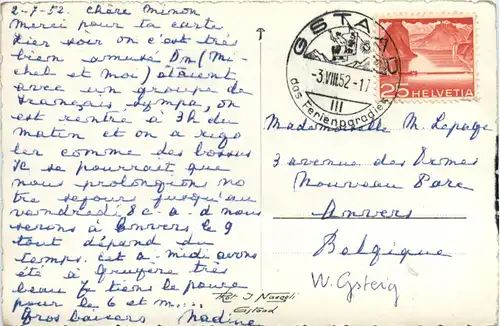 2-7-52. Chère Minon
Merci pour ta carte
Hier soir on c'est très
bien amusé Dn (Mi-
chel et moi) étaient
avec un groupe de
français sympa, on
est rentré à 3h du
matin et on a rigo
ler comme des bossus
Il se pourrait que
nous prolongions no
tre sejour jusqu'au
vendredi 8 c-à-d nous
serons à Anvers le 9
tout dépend du
temps. cet a-midi avons
été à gruyère très
beau tiens le pouce
pour le 6 et m....
Gros baisers Nadine
GSTAAD
-3.VIII.52-17
III
das Ferienparadies
25 HELVETIA
Mademoiselle M. Lepage
3 avenue des Ormes
Nouveau Parc
Anvers
Belgique
W. Gsteig
Phot. J Naegeli
Gstaad